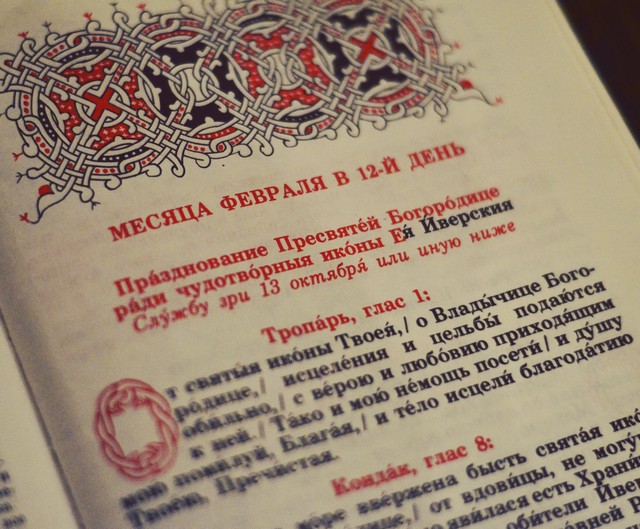 МЕСЯЦА ФЕВРАЛЯ В 12-Й ДЕНЬ
Пра́зднование Пресвяте́й Богоро́дице
ра́ди чудотво́рныя ико́ны Ея́ И́верския
Слу́жбу зри 13 октября́ или иную ниже
Тропа́рь, глас 1:
От святы́я ико́ны Твоея́,/ о Влады́чице Бого-
ро́дице,/ исцеле́ния и цельбы́ подаю́тся
оби́льно,/ с ве́рою и любо́вию приходя́щим
к ней./ Та́ко и мою́ не́мощь посети́/ и ду́шу
мою́ поми́луй, Блага́я,/ и те́ло исцели́ благода́тию
Твое́ю, Пречи́стая.
Конда́к, глас 8:
мо́ре вве́ржена бысть свята́я ико
вдови́цы, не могу́
яви́лася есть Храни́